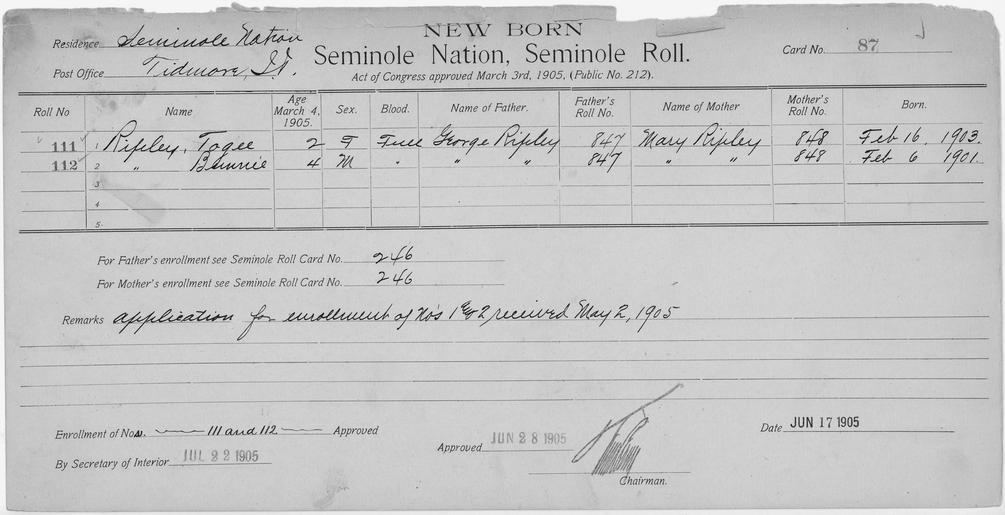 NEW BORN
Residence Seminole Nation
Seminole Nation, Seminole Roll.
Card No. 87
Post Office Tidmore, I.T.
Act of Congress approved March 3rd, 1905, (Public No. 212).
Roll No Name Age March 4, 1905. Sex. Blood. Name of Father. Father's Roll No. Name of Mother Mother's Roll No. Born.
111 1 Ripley, Togee 2 F Full George Ripley 847 Mary Ripley 848 Feb 16 1903.
112 2 " Bunnie 4 M " " " 847 " " 848 Feb 6 1901.
3
4
5
For Father's enrollment see Seminole Roll Card No. 246
For Mother's enrollment see Seminole Roll Card No. 246
Remarks application for enrollment of No's 1 & 2, received May 2, 1905
Enrollment of Nos. 111 and 112 Approved
Approved JUN 28 1905
Date JUN 17 1905
By Secretary of Interior JUL 22 1905
Chairman.